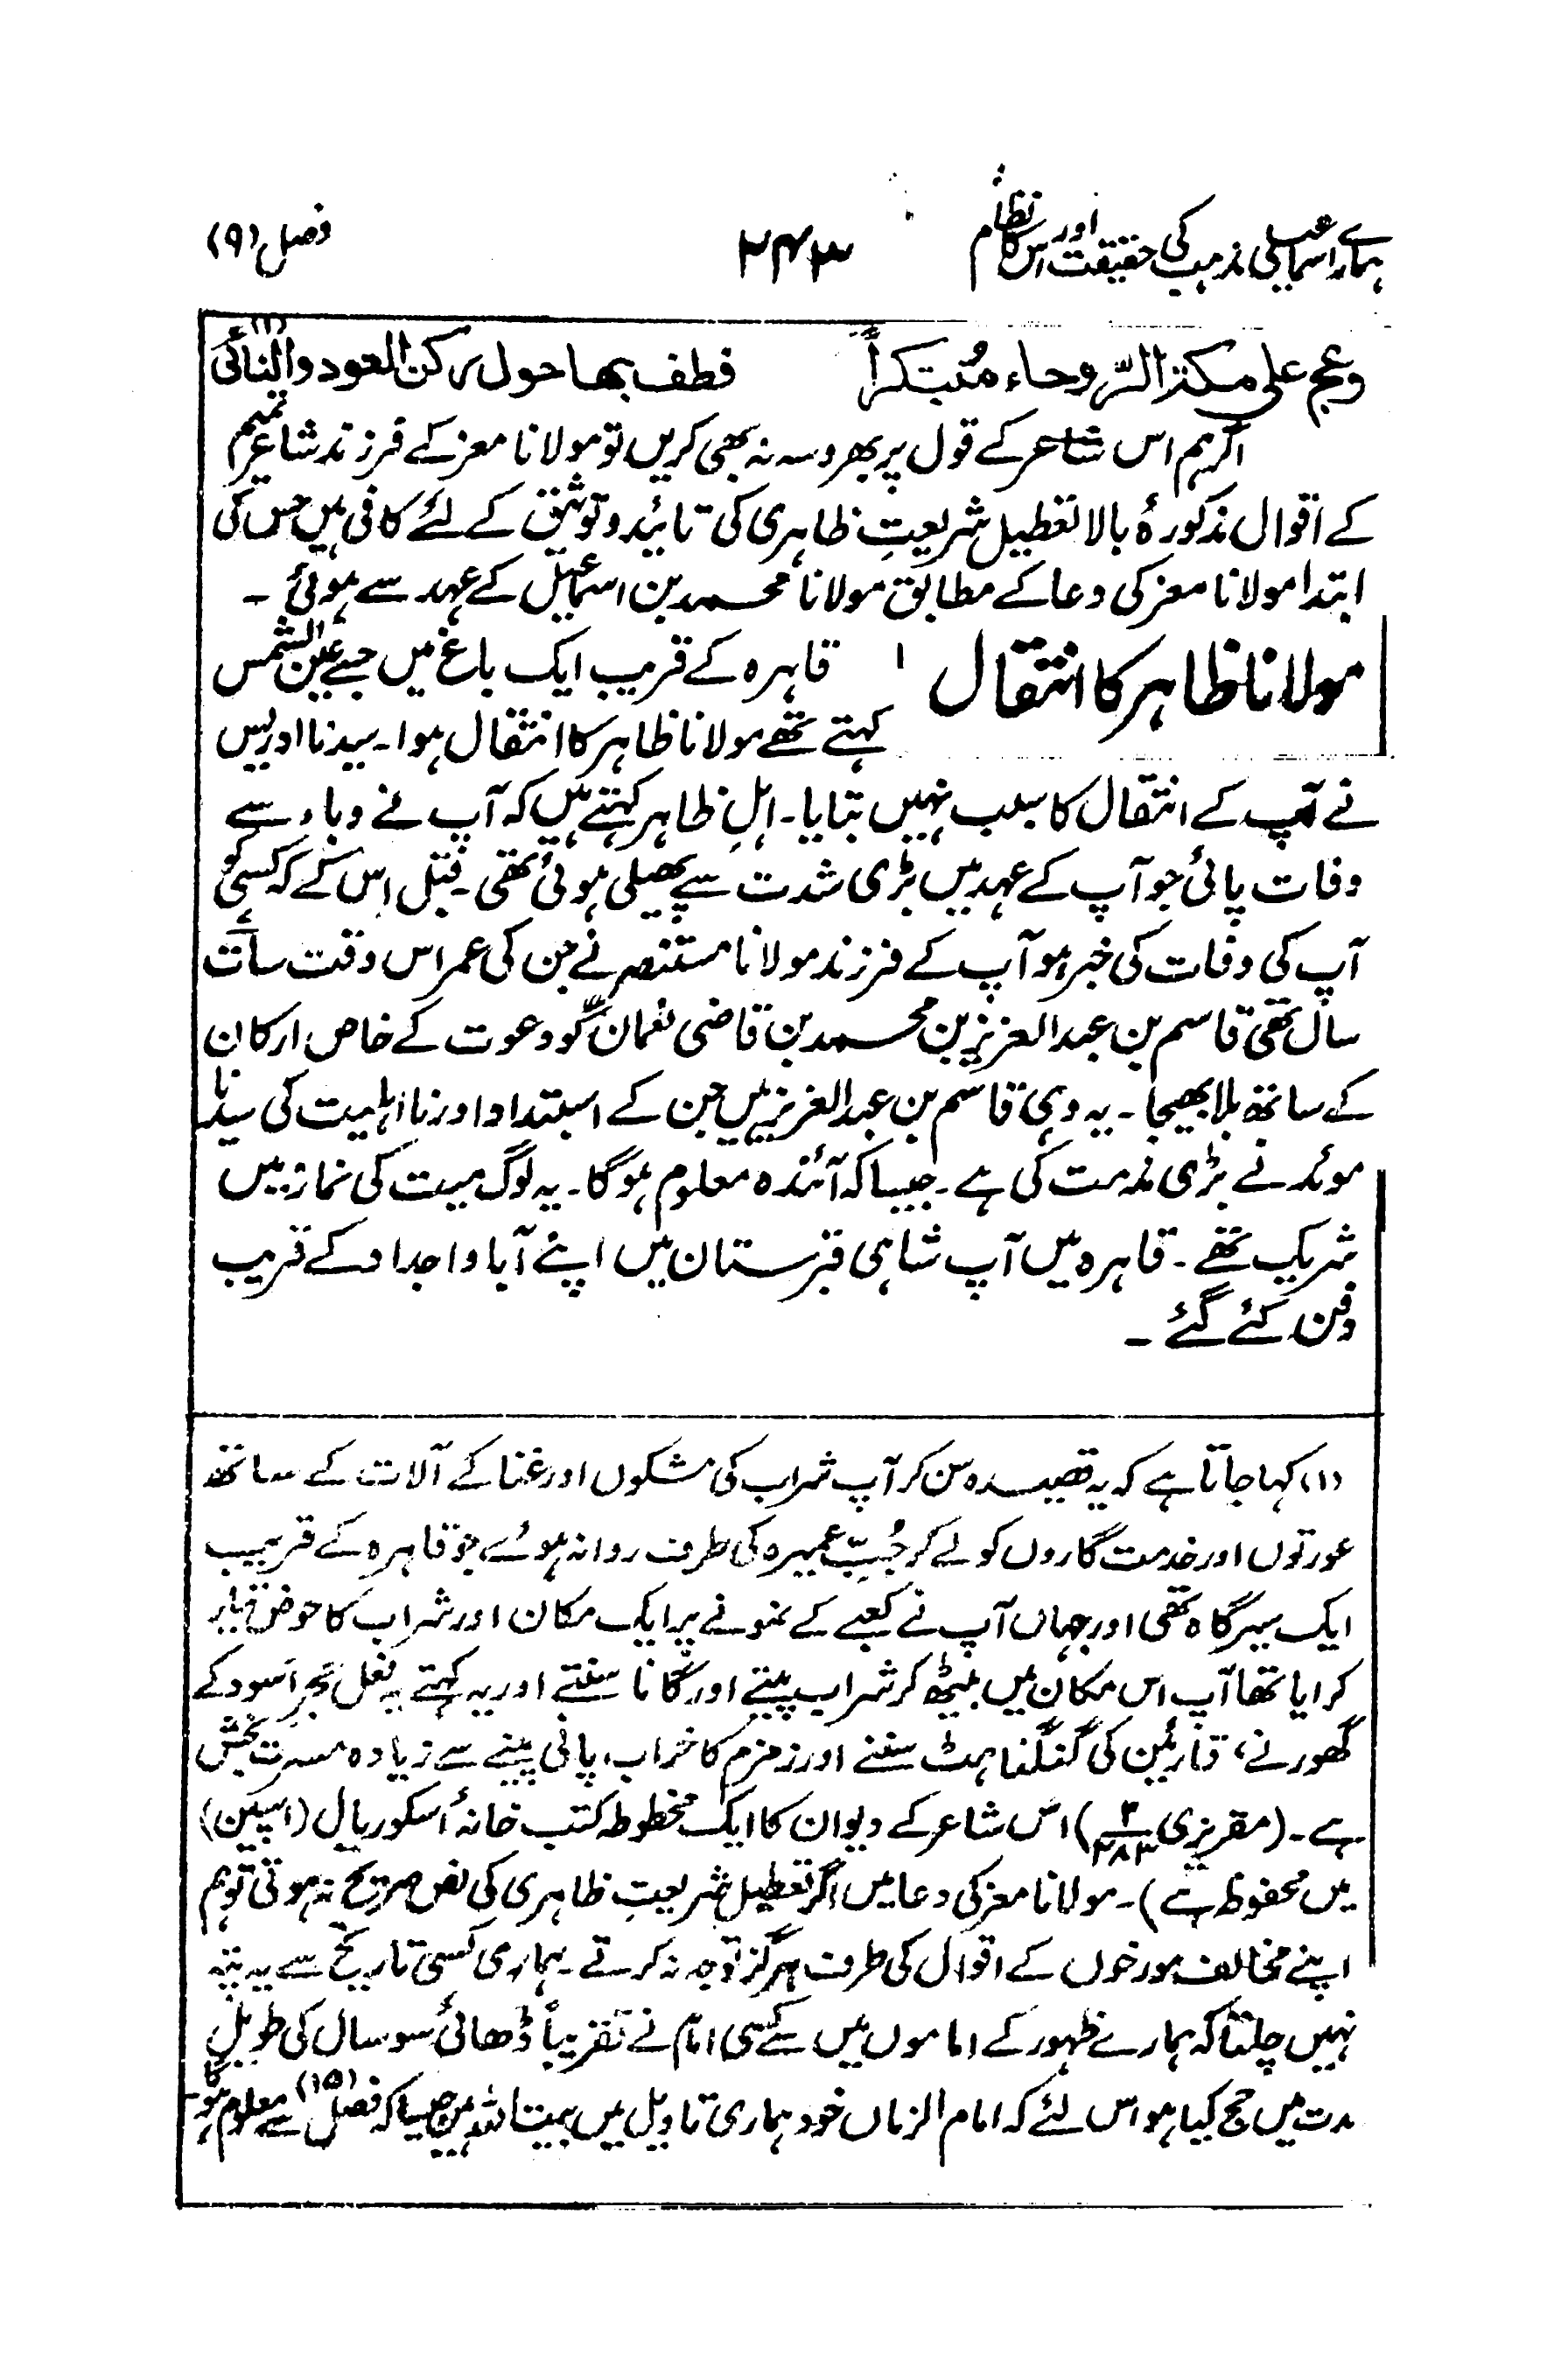 ہمارے اسماعیلی مذہب کی حقیقت اور اس کا نظام ۲۴۳ فصل (۹)
وعج علی مکۃ الرّوحاء مُبتکراً فطف بھا حول رکن العود والنائی (۱)
اگر ہم اس شاعر کے قول پر بھروسہ نہ بھی کریں تو مولانا معز کے فرزند شاعر تمیم
کے اقوال مذکورۂ بالا تعطیل شریعتِ ظاہری کی تائید و توثیق کے لئے کافی ہیں جس کی
ابتدا مولانا معز کی دعا کے مطابق مولانا محمد بن اسماعیل کے عہد سے ہوئی ۔
مولانا ظاہر کا انتقال
قاہرہ کے قریب ایک باغ میں جسے عین الشمس
کہتے تھے مولانا ظاہر کا انتقال ہوا۔ سیدنا ادریس
نے آپ کے انتقال کا سبب نہیں بتایا۔ اہلِ ظاہر کہتے ہیں کہ آپ نے وباء سے
وفات پائی جو آپ کے عہد میں بڑی شدت سے پھیلی ہوئی تھی۔ قبل اس کے کہ کسی کو
آپ کی وفات کی خبر ہو آپ کے فرزند مولانا مستنصر نے جن کی عمر اس وقت سات
سال تھی قاسم بن عبد العزیز بن محمد بن قاضی نعمان کو دعوت کے خاص ارکان
کے ساتھ بلا بھیجا ۔ یہ وہی قاسم بن عبد العزیز ہیں جن کے استبداد اور نا اہلیت کی سیدنا
موئد نے بڑی مذمت کی ہے ۔ جیسا کہ آئندہ معلوم ہوگا ۔ یہ لوگ میت کی نماز میں
شریک تھے ۔ قاہرہ میں آپ شاہی قبرستان میں اپنے آبا و اجداد کے قریب
دفن کئے گئے ۔
(۱) کہا جاتا ہے کہ یہ قصیدہ سن کر آپ شراب کی مشکوں اور غنا کے آلات کے ساتھ
عورتوں اور خدمت گاروں کو لے کر جُبِّ عمیرہ کی طرف روانہ ہوئے جو قاہرہ کے قریب
ایک سیرگاہ تھی اور جہاں آپ نے کعبے کے نمونے پر ایک مکان اور شراب کا حوض تیار
کرایا تھا آپ اس مکان میں بیٹھ کر شراب پیتے اور گانا سنتے اور یہ کہتے یہ فعل حجرِ اسود کے
گھورنے، قارئین کی گنگناہٹ سننے اور زمزم کا خراب پانی پینے سے زیادہ مسرت بخش
ہے ۔ (مقریزی ۲/۲۸۳) اس شاعر کے دیوان کا ایک مخطوطہ کتب خانۂ اسکوریال (اسپین)
میں محفوظ ہے) ۔ مولانا معز کی دعا میں اگر تعطیل شریعتِ ظاہری کی نص صریح نہ ہوتی تو ہم
اپنے مخالف مورخوں کے اقوال کی طرف ہرگز توجہ نہ کرتے ۔ ہماری کسی تاریخ سے یہ پتہ
نہیں چلتا کہ ہمارے ظہور کے اماموں میں سے کسی امام نے تقریباً ڈھائی سو سال کی طویل
مدت میں حج کیا ہو اس لئے کہ امام الزماں خود ہماری تاویل میں بیت اللہ ہیں جیسا کہ فصل (۱۵) سے معلوم ہوگا۔